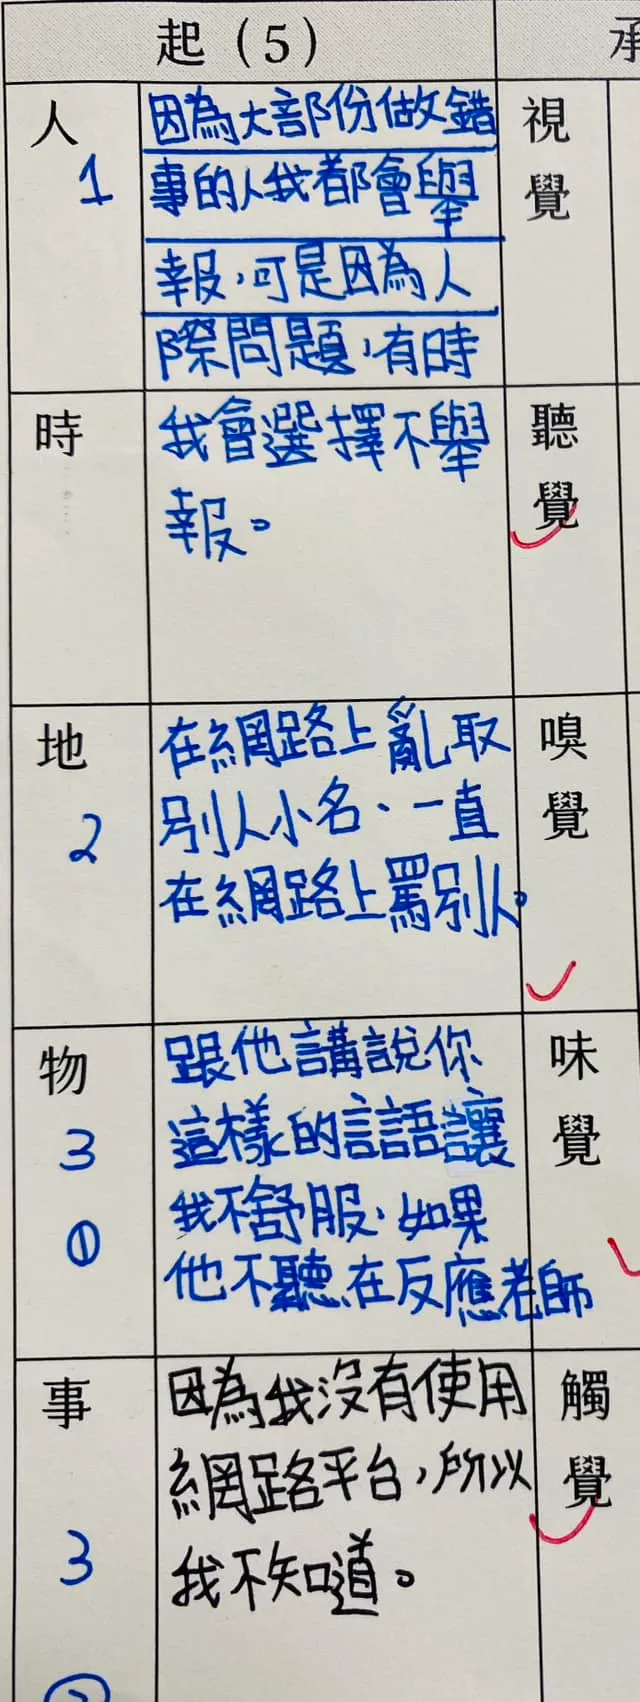 起(5)
承
人
1
因為大部份做錯
事的人我都會舉
報,可是因為人
際問題,有時
視覺
時
我會選擇不舉
報。
聽覺
地
2
在網路上亂取
別人小名、一直
在網路上罵別人。
嗅覺
物
3
①
跟他講說你
這樣的言語讓
我不舒服,如果
他不聽在反應老師
味覺
事
3
因為我沒有使用
網路平台,所以
我不知道。
觸覺